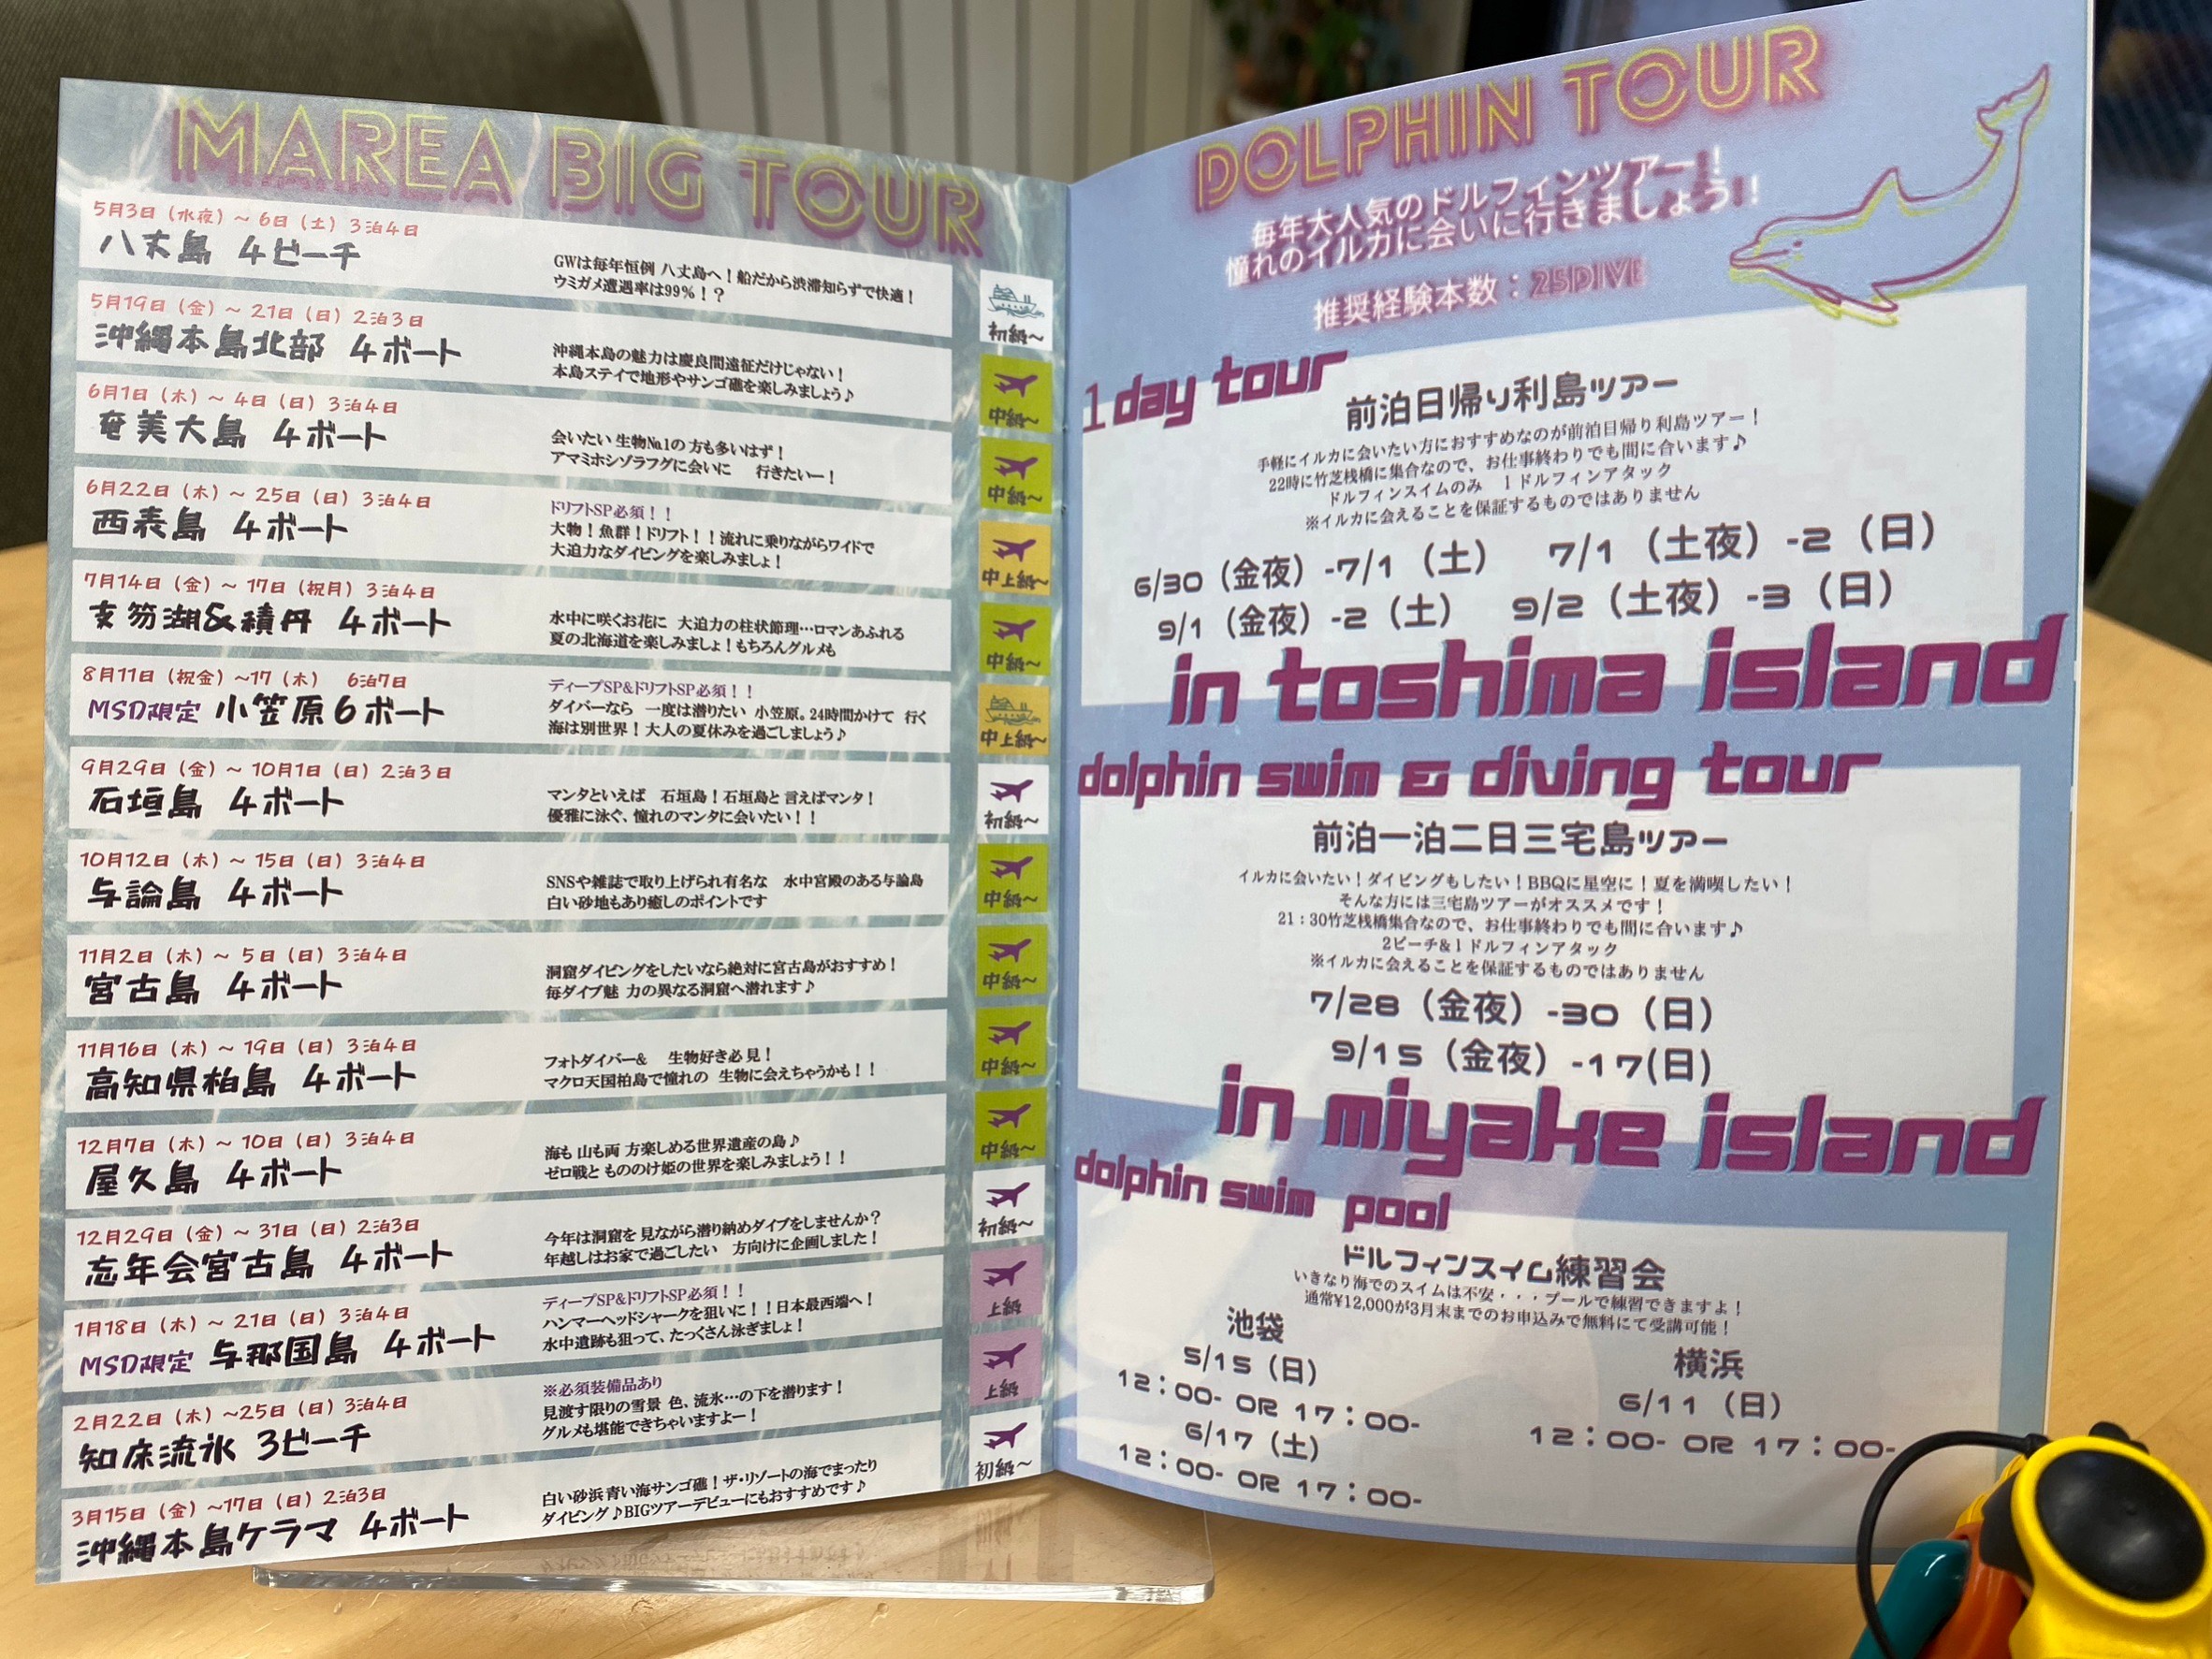 MAREA BIG TOUR
5月3日（水夜）～6日（土）3泊4日
八丈島 4ビーチ
GWは毎年恒例 八丈島へ！船だから渋滞知らずで快適！
ウミガメ遭遇率は99%！？
初級～
5月19日（金）～21日（日）2泊3日
沖縄本島北部 4ボート
沖縄本島の魅力は慶良間遠征だけじゃない！
本島ステイで地形やサンゴ礁を楽しみましょう♪
中級～
6月1日（木）～4日（日）3泊4日
奄美大島 4ボート
会いたい 生物№1の 方も多いはず！
アマミホシゾラフグに会いに 行きたいー！
中級～
6月22日（木）～25日（日）3泊4日
西表島 4ボート
ドリフトSP必須！！
大物！魚群！ドリフト！！流れに乗りながらワイドで
大迫力なダイビングを楽しみましょ！
中上級～
7月14日（金）～17日（祝月）3泊4日
支笏湖&積丹 4ボート
水中に咲くお花に 大迫力の柱状節理…ロマンあふれる
夏の北海道を楽しみましょ！もちろんグルメも
中級～
8月11日（祝金）～17（木） 6泊7日
MSD限定 小笠原6ボート
ディープSP&ドリフトSP必須！！
ダイバーなら 一度は潜りたい 小笠原。24時間かけて 行く
海は別世界！大人の夏休みを過ごしましょう♪
中上級～
9月29日（金）～10月1日（日）2泊3日
石垣島 4ボート
マンタといえば 石垣島！石垣島と言えばマンタ！
優雅に泳ぐ、憧れのマンタに会いたい！！
初級～
10月12日（木）～15日（日）3泊4日
与論島 4ボート
SNSや雑誌で取り上げられ有名な 水中宮殿のある与論島
白い砂地もあり癒しのポイントです
中級～
11月2日（木）～5日（日）3泊4日
宮古島 4ボート
洞窟ダイビングをしたいなら絶対に宮古島がおすすめ！
毎ダイブ魅 力の異なる洞窟へ潜れます♪
中級～
11月16日（木）～19日（日）3泊4日
高知県柏島 4ボート
フォトダイバー& 生物好き必見！
マクロ天国柏島で憧れの 生物に会えちゃうかも！！
中級～
12月7日（木）～10日（日）3泊4日
屋久島 4ボート
海も 山も両 方楽しめる世界遺産の島♪
ゼロ戦と もののけ姫の世界を楽しみましょう！！
中級～
12月29日（金）～31日（日）2泊3日
忘年会宮古島 4ボート
今年は洞窟を 見ながら潜り納めダイブをしませんか？
年越しはお家で過ごしたい 方向けに企画しました！
初級～
1月18日（木）～21日（日）3泊4日
MSD限定 与那国島 4ボート
ディープSP&ドリフトSP必須！！
ハンマーヘッドシャークを狙いに！！日本最西端へ！
水中遺跡も狙って、たっくさん泳ぎましょ！
上級
2月22日（木）～25日（日）3泊4日
知床流氷 3ビーチ
※必須装備品あり
見渡す限りの雪景 色、流氷…の下を潜ります！
グルメも堪能できちゃいますよー！
上級
3月15日（金）～17日（日）2泊3日
沖縄本島ケラマ 4ボート
白い砂浜青い海サンゴ礁！ザ・リゾートの海でまったり
ダイビング♪BIGツアーデビューにもおすすめです♪
初級～
DOLPHIN TOUR
毎年大人気のドルフィンツアー！
憧れのイルカに会いに行きましょう！！
推奨経験本数：25DIVE
1day tour
前泊日帰り利島ツアー
手軽にイルカに会いたい方におすすめなのが前泊日帰り利島ツアー！
22時に竹芝桟橋に集合なので、お仕事終わりでも間に合います♪
ドルフィンスイムのみ 1ドルフィンアタック
※イルカに会えることを保証するものではありません
6/30（金夜）-7/1（土） 7/1（土夜）-2（日）
9/1（金夜）-2（土） 9/2（土夜）-3（日）
in toshima island
dolphin swim & diving tour
前泊一泊二日三宅島ツアー
イルカに会いたい！ダイビングもしたい！BBQに星空に！夏を満喫したい！
そんな方には三宅島ツアーがオススメです！
21：30竹芝桟橋集合なので、お仕事終わりでも間に合います♪
2ビーチ&1ドルフィンアタック
※イルカに会えることを保証するものではありません
7/28（金夜）-30（日）
9/15（金夜）-17(日)
in miyake island
dolphin swim pool
ドルフィンスイム練習会
いきなり海でのスイムは不安・・・プールで練習できますよ！
通常¥12,000が3月末までのお申込みで無料にて受講可能！
池袋
5/15（日）
12：00- OR 17：00-
6/17（土）
12：00- OR 17：00-
横浜
6/11（日）
12：00- OR 17：00-